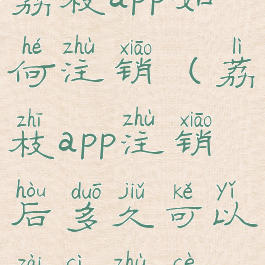 荔枝app如
hé zhù xiāo lì
何注销（荔
zhī zhù xiāo
枝app注销
hòu duō jiǔ kě yǐ
后多久可以
zài cì zhù cè